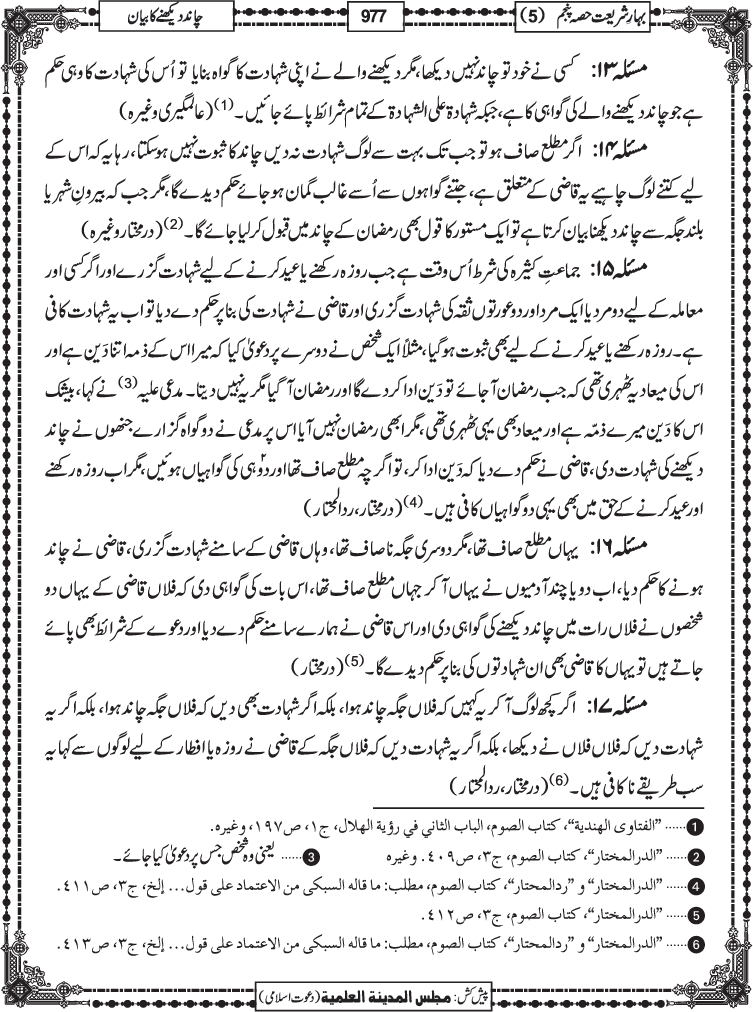 بہارِ شریعت حصہ پنجم (5)
977
چاند دیکھنے کا بیان
مسئلہ ۱۳: کسی نے خود تو چاند نہیں دیکھا، مگر دیکھنے والے نے اپنی شہادت کا گواہ بنایا تو اُس کی شہادت کا وہی حکم
ہے جو چاند دیکھنے والے کی گواہی کا ہے، جبکہ شہادۃ علی الشہادۃ کے تمام شرائط پائے جائیں۔(1) (عالمگیری وغیرہ)
مسئلہ ۱۴: اگر مطلع صاف ہو تو جب تک بہت سے لوگ شہادت نہ دیں چاند کا ثبوت نہیں ہو سکتا، رہا یہ کہ اس کے
لیے کتنے لوگ چاہیے یہ قاضی کے متعلق ہے، جتنے گواہوں سے اُسے غالب گمان ہو جائے حکم دیدے گا، مگر جب کہ بیرونِ شہر یا
بلند جگہ سے چاند دیکھنا بیان کرتا ہے تو ایک مستور کا قول بھی رمضان کے چاند میں قبول کر لیا جائے گا۔(2) (درمختار وغیرہ)
مسئلہ ۱۵: جماعتِ کثیرہ کی شرط اُس وقت ہے جب روزہ رکھنے یا عید کرنے کے لیے شہادت گزرے اور اگر کسی اور
معاملہ کے لیے دو مرد یا ایک مرد اور دو عورتوں ثقہ کی شہادت گزری اور قاضی نے شہادت کی بنا پر حکم دے دیا تو اب یہ شہادت کافی
ہے۔ روزہ رکھنے یا عید کرنے کے لیے بھی ثبوت ہو گیا، مثلاً ایک شخص نے دوسرے پر دعویٰ کیا کہ میرا اس کے ذمہ اتنا دَین ہے اور
اس کی میعاد یہ ٹھہری تھی کہ جب رمضان آ جائے تو دَین ادا کر دے گا اور رمضان آ گیا مگر یہ نہیں دیتا۔ مدعی علیہ(3) نے کہا، بیشک
اس کا دَین میرے ذمّہ ہے اور میعاد بھی یہی ٹھہری تھی، مگر ابھی رمضان نہیں آیا اس پر مدعی نے دو گواہ گزارے جنھوں نے چاند
دیکھنے کی شہادت دی، قاضی نے حکم دے دیا کہ دَین ادا کر، تو اگرچہ مطلع صاف تھا اور دو۲ ہی کی گواہیاں ہوئیں، مگر اب روزہ رکھنے
اور عید کرنے کے حق میں بھی یہی دو گواہیاں کافی ہیں۔(4) (درمختار، ردالمحتار)
مسئلہ ۱۶: یہاں مطلع صاف تھا، مگر دوسری جگہ ناصاف تھا، وہاں قاضی کے سامنے شہادت گزری، قاضی نے چاند
ہونے کا حکم دیا، اب دو یا چند آدمیوں نے یہاں آ کر جہاں مطلع صاف تھا، اس بات کی گواہی دی کہ فلاں قاضی کے یہاں دو
شخصوں نے فلاں رات میں چاند دیکھنے کی گواہی دی اور اس قاضی نے ہمارے سامنے حکم دے دیا اور دعوے کے شرائط بھی پائے
جاتے ہیں تو یہاں کا قاضی بھی ان شہادتوں کی بنا پر حکم دیدے گا۔(5) (درمختار)
مسئلہ ۱۷: اگر کچھ لوگ آ کر یہ کہیں کہ فلاں جگہ چاند ہوا، بلکہ اگر شہادت بھی دیں کہ فلاں جگہ چاند ہوا، بلکہ اگر یہ
شہادت دیں کہ فلاں فلاں نے دیکھا، بلکہ اگر یہ شہادت دیں کہ فلاں جگہ کے قاضی نے روزہ یا افطار کے لیے لوگوں سے کہا یہ
سب طریقے ناکافی ہیں۔(6) (درمختار، ردالمحتار)
1 ...... "الفتاوى الهندية"، كتاب الصوم، الباب الثاني في رؤية الهلال، ج۱، ص۱۹۷، وغيره.
2 ...... "الدرالمختار"، كتاب الصوم، ج۳، ص۴۰۹. وغيره 3 ...... یعنی وہ شخص جس پر دعویٰ کیا جائے۔
4 ...... "الدرالمختار" و "ردالمحتار"، كتاب الصوم، مطلب: ما قاله السبكي من الاعتماد على قول... إلخ، ج۳، ص۴۱۱.
5 ...... "الدرالمختار"، كتاب الصوم، ج۳، ص۴۱۲.
6 ...... "الدرالمختار" و "ردالمحتار"، كتاب الصوم، مطلب: ما قاله السبكي من الاعتماد على قول... إلخ، ج۳، ص۴۱۳.
پیش کش: مجلس المدينة العلمية (دعوت اسلامی)